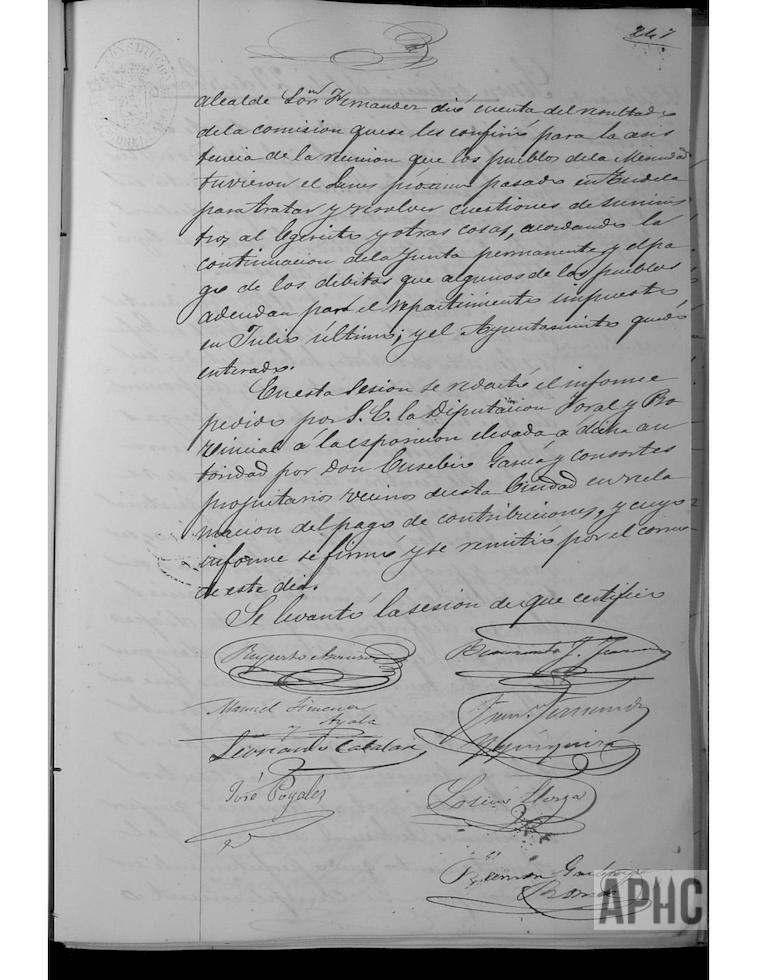 247
alcalde Sor. Fernandez dió cuenta del resultado
de la comision que se les confirió para la asis
tencia de la reunion que los pueblos de la Merindad
tuvieron el Lunes próximo pasado en Tudela
para tratar y resolver cuestiones de suminis
tros al Egército y otras cosas, acordando la
continuacion de la Junta permanente y el pa
go de los débitos que algunos de los pueblos
adeudan para el repartimiento impuesto
en Julio último; y el Ayuntamiento quedó
enterado.
En esta sesion se redactó el informe
pedido por S. E. la Diputacion Foral y Pro
vincial á la esposicion elevada a dicha au
toridad por Don Eusebio Garcia y consortes
propietarios vecinos de esta Ciudad en recla
macion del pago de contribuciones, y cuyo
informe se firmó y se remitió por el correo
de este dia.
Se levantó la sesion de que certifico
Manuel Jimenez
y Ayala
Leonardo Catalan
José Poyales
APHC